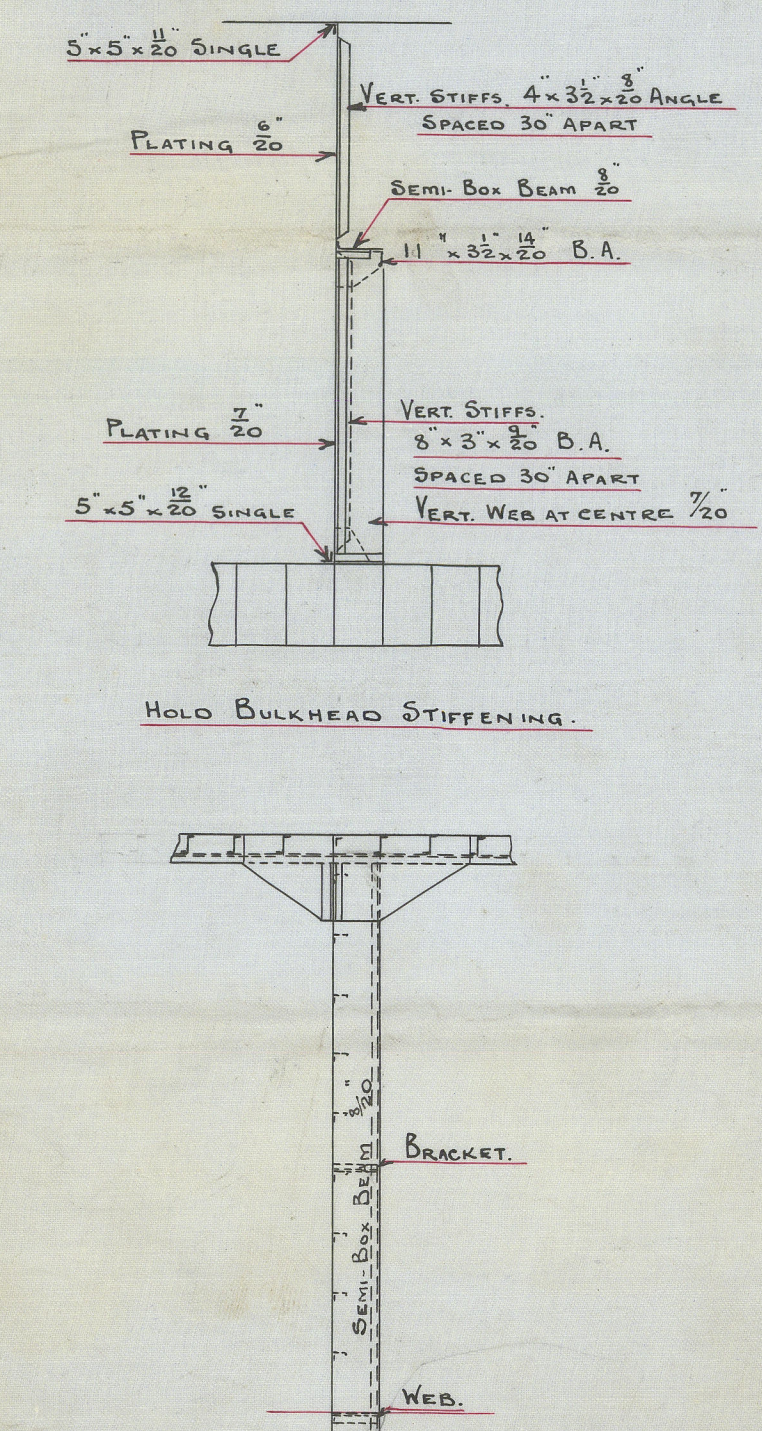 5" x 5" x 11/20" SINGLE
VERT. STIFFS. 4" x 3 1/2" x 8/20" ANGLE
SPACED 30" APART
PLATING 6/20"
SEMI-BOX BEAM 8/20"
11" x 3 1/2" x 14/20" B.A.
VERT. STIFFS.
8" x 3" x 9/20" B.A.
PLATING 7/20"
SPACED 30" APART
5" x 5" x 12/20" SINGLE
VERT. WEB AT CENTRE 7/20"
HOLD BULKHEAD STIFFENING.
SEMI-BOX BEAM 8/20"
BRACKET.
WEB.